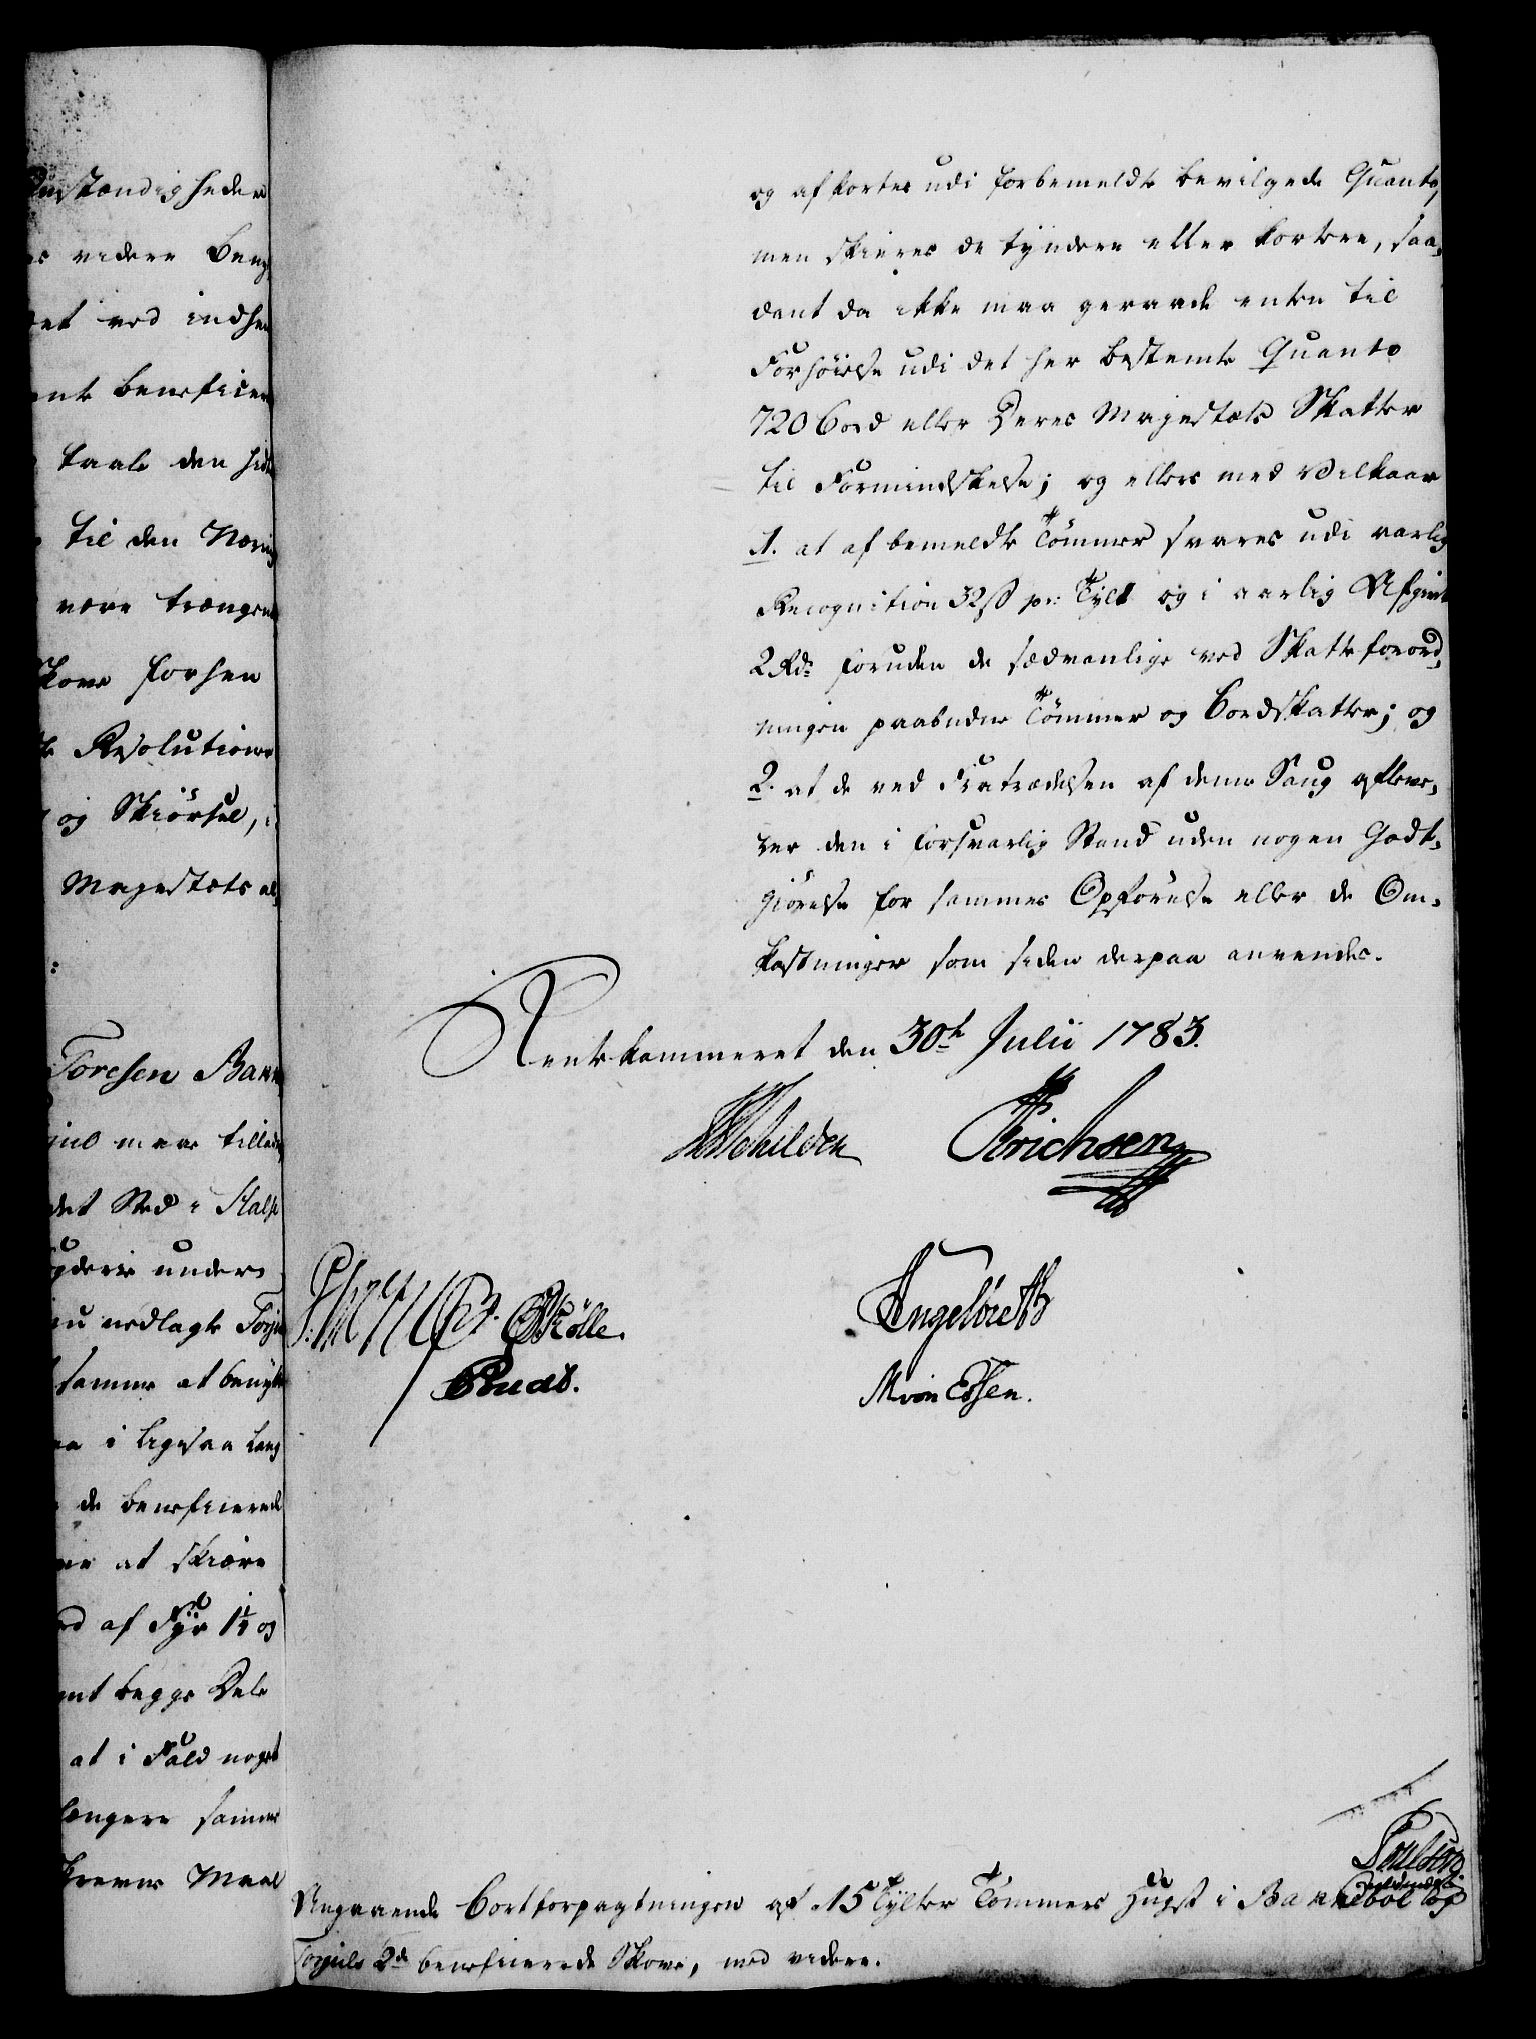 mstændigheder
videre
et ved indhen
beneficer
taale den
til den Næring
være trængende
Skove forhen
Resolutioner
og Skiørsel, i
Majestæts al
:
Toresen
mere tillad
det Sted i Halse
under
nedlagte Torju
samme at benytte
i ligesaa lang
de beneficerede
at skiære
af Fyr 1¼ og
begge Dele
at i Fald noget
længere samme
Maal
og afkortes udi forbemeldte bevilgede Quanto,
men skieres de tyndere eller kortere, saa-
dant da ikke maa geraade enten til
Forhøielse udi det her bestemte Quanto
720 Bord eller Deres Majestæts Skatter
til Formindskelse; og ellers med Vilkaar
1. at af bemeldte Tømmer svares udi aarlig
Recognition 32 ß pr: Tylt og i aarlig Afgivt
2 Rd: foruden de sædvanlige ved Skatteforord-
ningen paabudne Tømmer og Bordskatter; og
2. at de ved Fratrædelsen af denne Saug afleve-
rer den i forsvarlig Stand uden nogen Godt-
giørelse for sammes Opførelse eller de Om-
kostninger som siden derpaa anvendes.
Rentekammeret den 30te Julii 1783.
Schilden Erichsen
Skølle. Angelbreth
Ruds. M von Essen.
Angaaende Bortforpagtningen af 15 Tylter Tømmers Hugst i Bannebol og
Torjuls 2de beneficerede Skove, med videre.